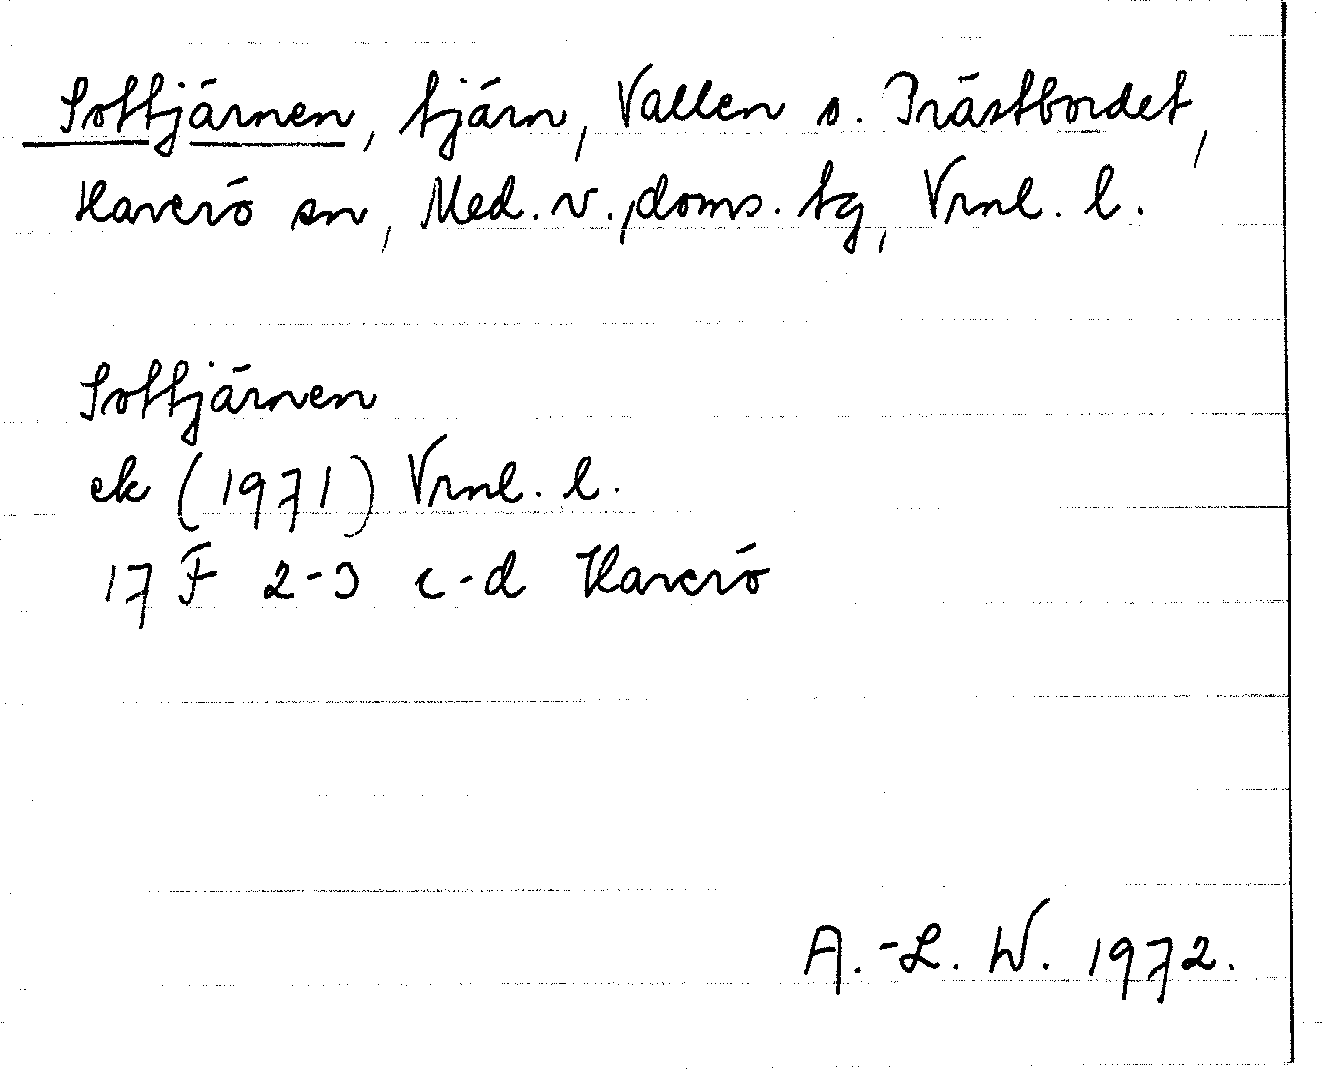 Sottjärnen, tjärn, Vallen o. Prästbordet,
Haverö sn, Med. v., doms. tg, Vrnl. l.
Sottjärnen
ek (1971) Vrnl. l.
17 F 2-3 c-d Haverö
A.-L. W. 1972.